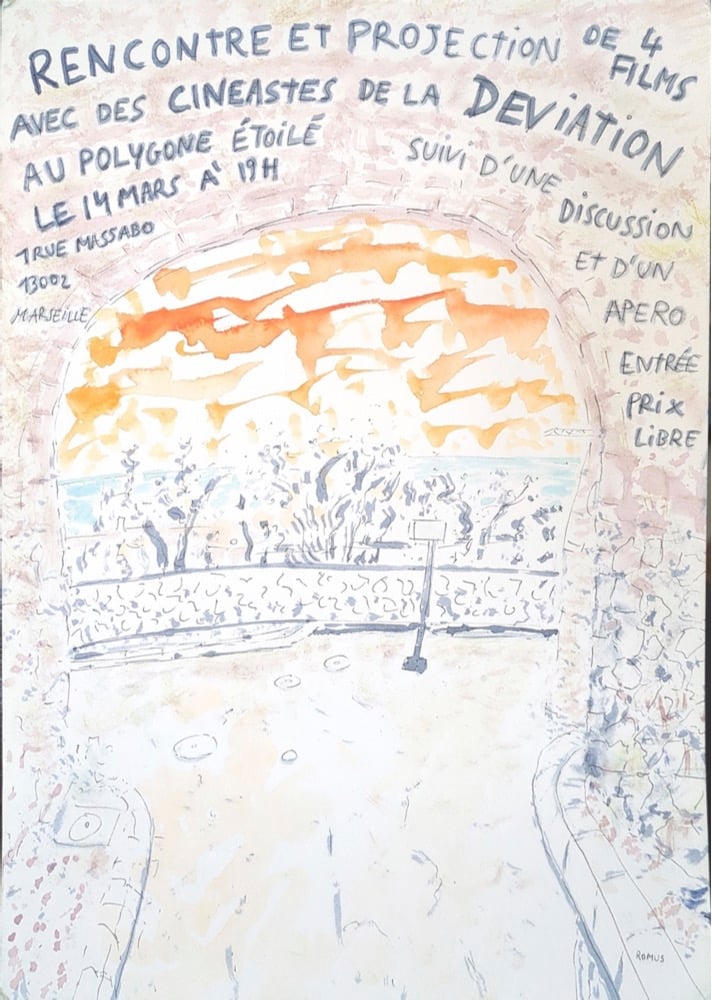 RENCONTRE ET PROJECTION DE 4 FILMS
AVEC DES CINEASTES DE LA DEVIATION
AU POLYGONE ÉTOILÉ
LE 14 MARS A' 19H
1 RUE MASSABO
13002
MARSEILLE
SUIVI D'UNE
DISCUSSION
ET D'UN
APERO
ENTRÉE
PRIX
LIBRE
ROMUS